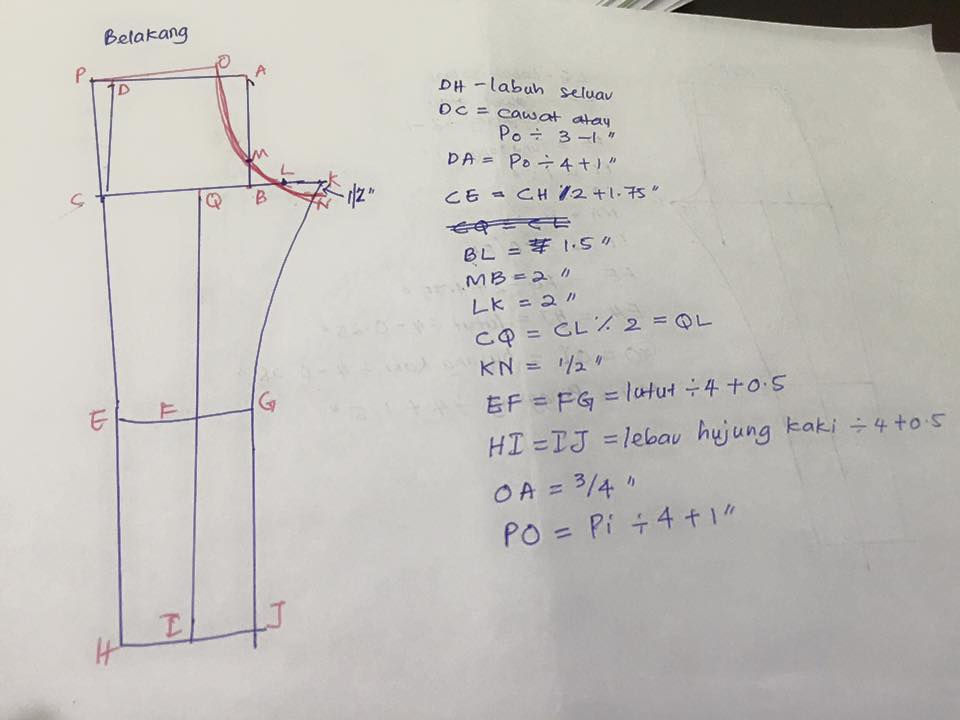 Belakang
P
O
A
D
M
L
K
C
Q
B
N
1/2"
E
F
G
H
I
J
DH - labuh seluar
DC = cawat atau
Po ÷ 3 - 1"
DA = Po ÷ 4 + 1"
CE = CH ٪ 2 + 1.75"
CQ = CL
BL = 1.5"
MB = 2"
LK = 2"
CQ = CL ٪ 2 = QL
KN = 1/2"
EF = FG = lutut ÷ 4 + 0.5
HI = IJ = lebar hujung kaki ÷ 4 + 0.5
OA = 3/4"
PO = Pi ÷ 4 + 1"